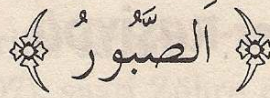 ﴿ اَلصَّبُورُ ﴾